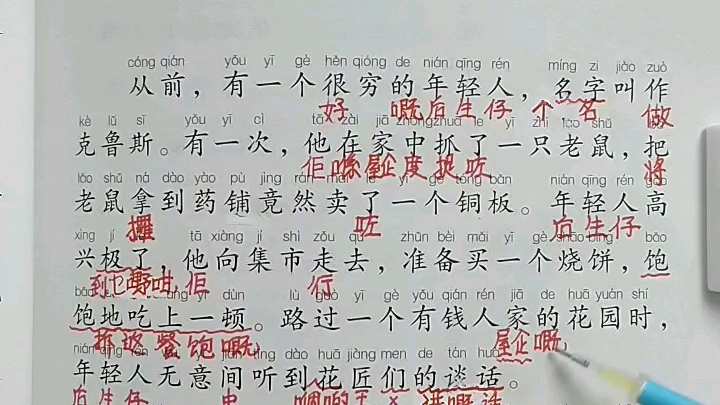 cóng qián yǒu yī gè hěn qióng de nián qīng rén míng zi jiào zuò
从前，有一个很穷的年轻人，名字叫作
好 嘅后生仔 个名 做
kè lǔ sī yǒu yī cì tā zài jiā zhōng zhuā le yī zhī lǎo shǔ
克鲁斯。有一次，他在家中抓了一只老鼠，把
佢喺屋企度 咗 将
lǎo shǔ ná dào yào pù jìng rán mài le yī gè tóng bǎn nián qīng rén gāo
老鼠拿到药铺竟然卖了一个铜板。年轻人高
攞 咗 后生仔
xìng jí tā xiàng jí shì zǒu qù zhǔn bèi mǎi yī gè shāo bǐng bǎo
兴极了，他向集市走去，准备买一个烧饼，饱
到 咁佢 行
dùn lù guò yī gè yǒu qián rén jiā de huā yuán shí
饱地吃上一顿。路过一个有钱人家的花园时，
餐饱嘅 屋企嘅
nián tīng dào huā jiàng men de tán huà
年轻人无意间听到花匠们的谈话。
后生仔